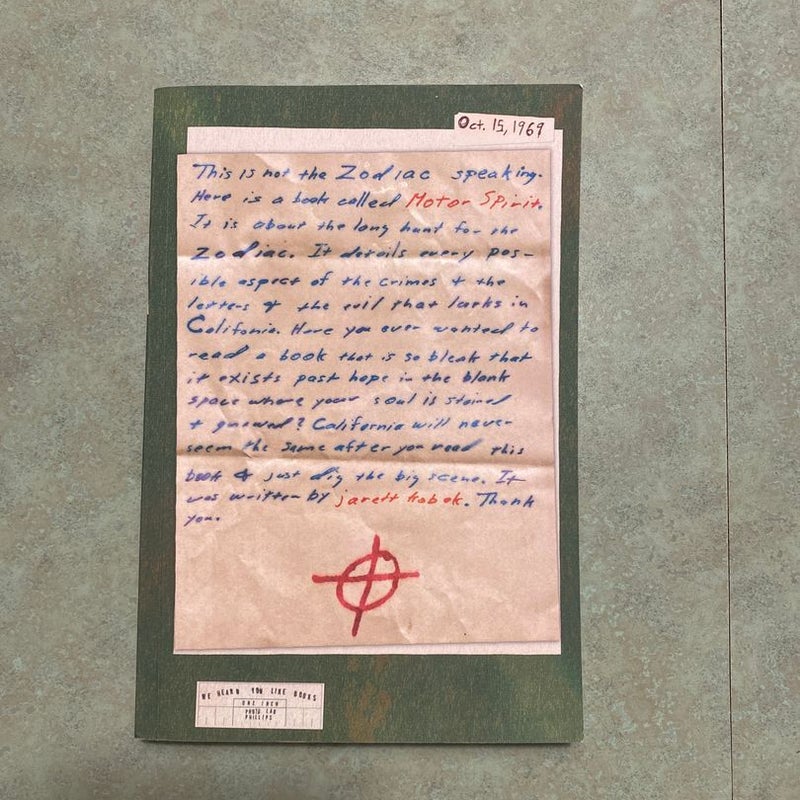 Oct. 15, 1969
This is not the Zodiac speaking.
Here is a book called Motor Spirit.
It is about the long hunt for the
Zodiac. It details every pos-
ible aspect of the crimes + the
letters & the evil that lurks in
Califonia. Have you ever wanted to
read a book that is so bleak that
it exists past hope in the blank
space where your soul is stained
+ gnawed? California will never
seem the same after you read this
book & just dig the big scene. It
was written by jarett kobek. Thank
you.
WE HEARD YOU LIKE BOOKS
ONE INCH
PHOTO LAB
PHILLIPS